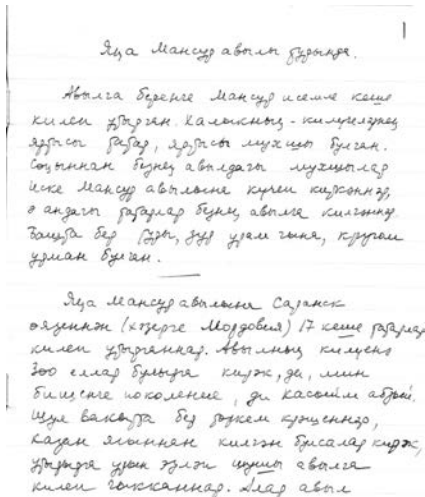 1
Яңа Мансур авылы турында.
Авылга беренче Мансур исемле кеше
килеп утырган. Халыкның - килүчеләрнең
яртысы татар, яртысы мухшы булган.
Соңыннан безнең авылдагы мухшылар
иске Мансур авылына күчеп киткәннәр,
ә андагы татарлар безнең авылга килгәннәр
Башта бер урам гына, кругом
урман булган.
Яңа Мансур авылына Саранск
өязеннән (хәзерге Мордовия) 17 кеше татарлар
килеп утырганнар. Авылның килүенә
300 еллар булырга кирәк, ди, мин
бишенче поколение, ди Касыйм абзый.
Шул вакытта бер төркем крәшеннәр,
Казан ягыннан килгән булсалар кирәк,
утырырга урын эзләп авылга
килеп чыкканнар. Алар авыл